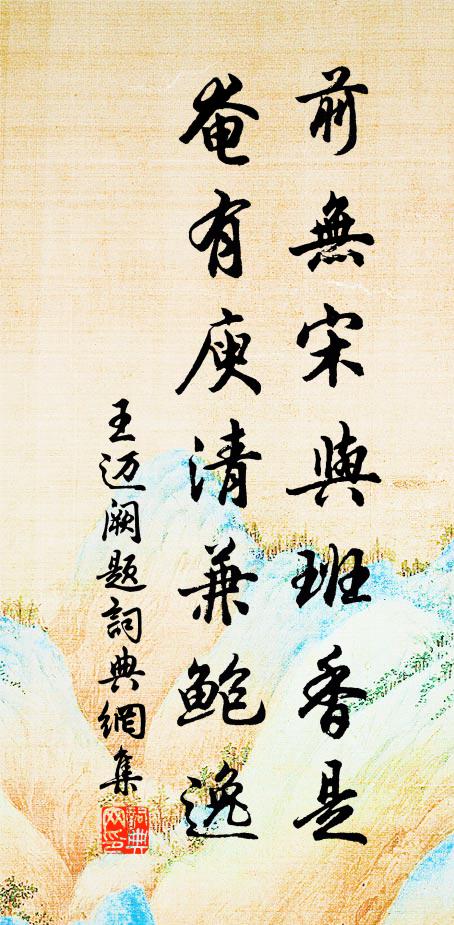 前無宋與班香是
奄有庾清兼鮑逸
王迈阙题詞典網集
詞典网印